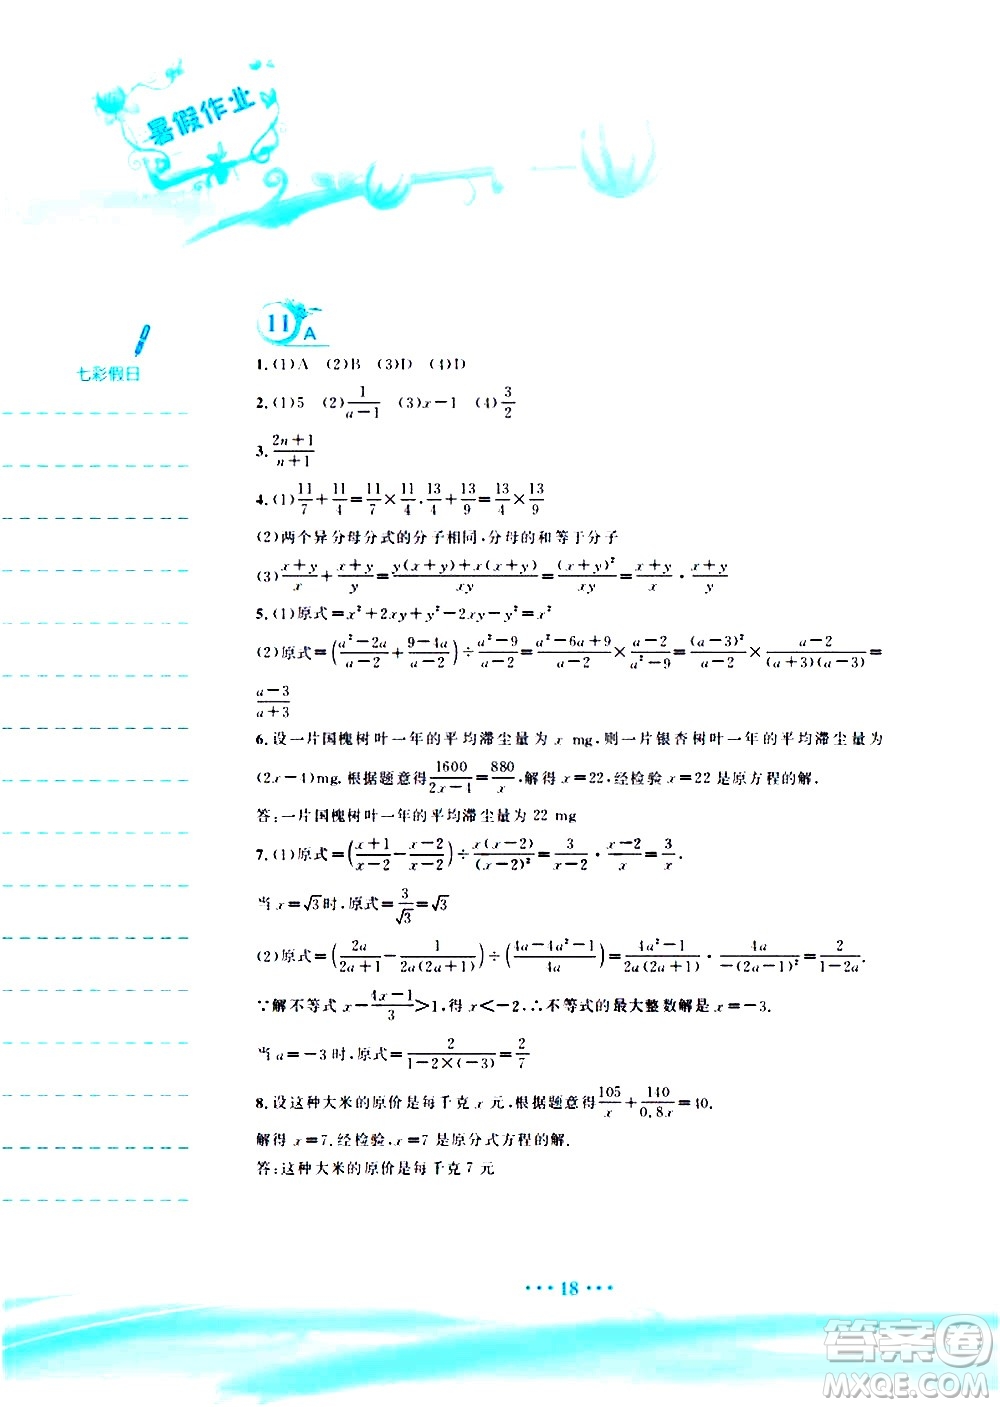 暑假作业
11 A
七彩假日
1.(1)A (2)B (3)D (4)D
2.(1)5 (2)1/(a−1) (3)x−1 (4)3/2
3.(2n+1)/(n+1)
4.(1)11/7+11/4=11/7×11/4,13/4+13/9=13/4×13/9
(2)两个异分母分式的分子相同,分母的和等于分子
(3)(x+y)/x+(x+y)/y=(y(x+y)+x(x+y))/xy=(x+y)²/xy=(x+y)/x·(x+y)/y
5.(1)原式=x²+2xy+y²−2xy−y²=x²
(2)原式=((a²−2a)/(a−2)+(9−4a)/(a−2))÷(a²−9)/(a−2)=(a²−6a+9)/(a−2)×(a−2)/(a²−9)=(a−3)²/(a−2)×(a−2)/((a+3)(a−3))=
(a−3)/(a+3)
6.设一片国槐树叶一年的平均滞尘量为 x mg,则一片银杏树叶一年的平均滞尘量为
(2x−4)mg.根据题意得1600/(2x−4)=880/x,解得 x=22,经检验 x=22 是原方程的解.
答:一片国槐树叶一年的平均滞尘量为 22 mg
7.(1)原式=((x+1)/(x−2)−(x−2)/(x−2))÷x(x−2)/(x−2)²=3/(x−2)·(x−2)/x=3/x.
当 x=√3时,原式=3/√3=√3
(2)原式=(2a/(2a+1)−1/(2a(2a+1)))÷((4a−4a²−1)/4a)=(4a²−1)/(2a(2a+1))·4a/(−(2a−1)²)=2/(1−2a).
∵解不等式 x−(4x−1)/3>1,得 x<−2,∴不等式的最大整数解是 x=−3.
当 a=−3 时,原式=2/(1−2×(−3))=2/7
8.设这种大米的原价是每千克 x 元,根据题意得105/x+140/0.8x=40.
解得 x=7.经检验,x=7 是原分式方程的解.
答:这种大米的原价是每千克 7 元
···18···
答案卷
MXQE.COM